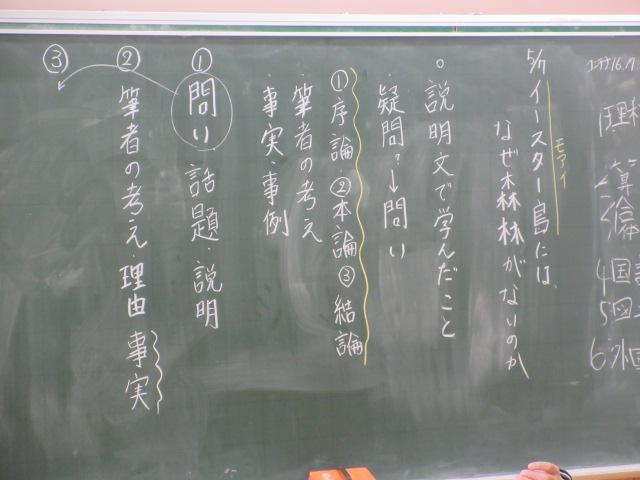 5/7 イースター島には、
モアイ
なぜ森林がないのか
○説明文で学んだこと
・疑問?→問い
①序論・②本論③結論
・筆者の考え
・事実・事例
① 問い 話題・説明
② 筆者の考え・理由 事実
③
1理科
2算
4国
5図
6外国